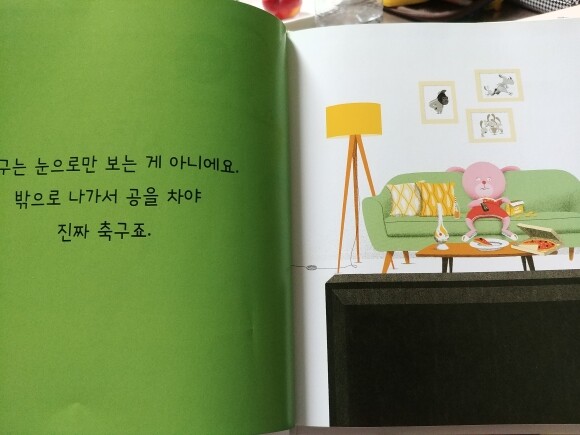 구는 눈으로만 보는 게 아니에요.
밖으로 나가서 공을 차야
진짜 축구죠.